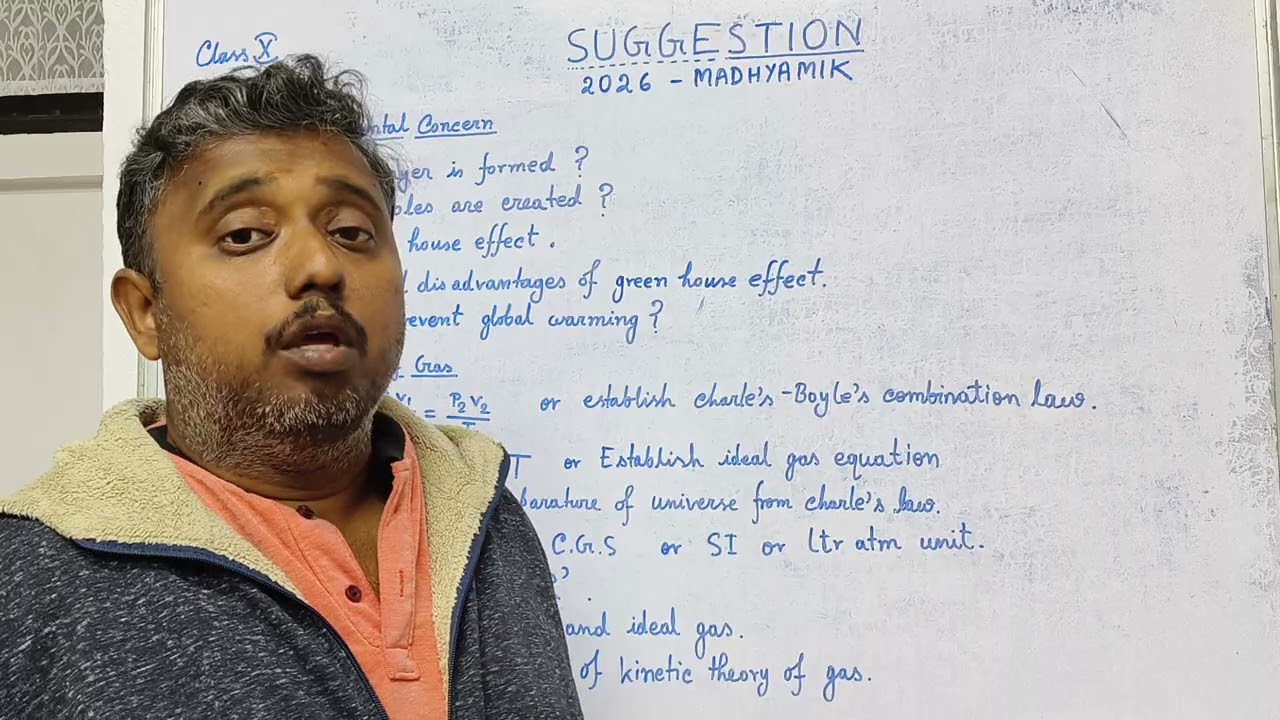 Class X
SUGGESTION
2026 - MADHYAMIK
ntal Concern
yer is formed ?
oles are created ?
house effect .
disadvantages of green house effect.
event global warming ?
Gas
V₁ = P₂V₂ or establish charle's-Boyle's combination law.
T or Establish ideal gas equation
parature of universe from charle's law.
C.G.S or SI or ltr atm unit.
and ideal gas.
of kinetic theory of gas.